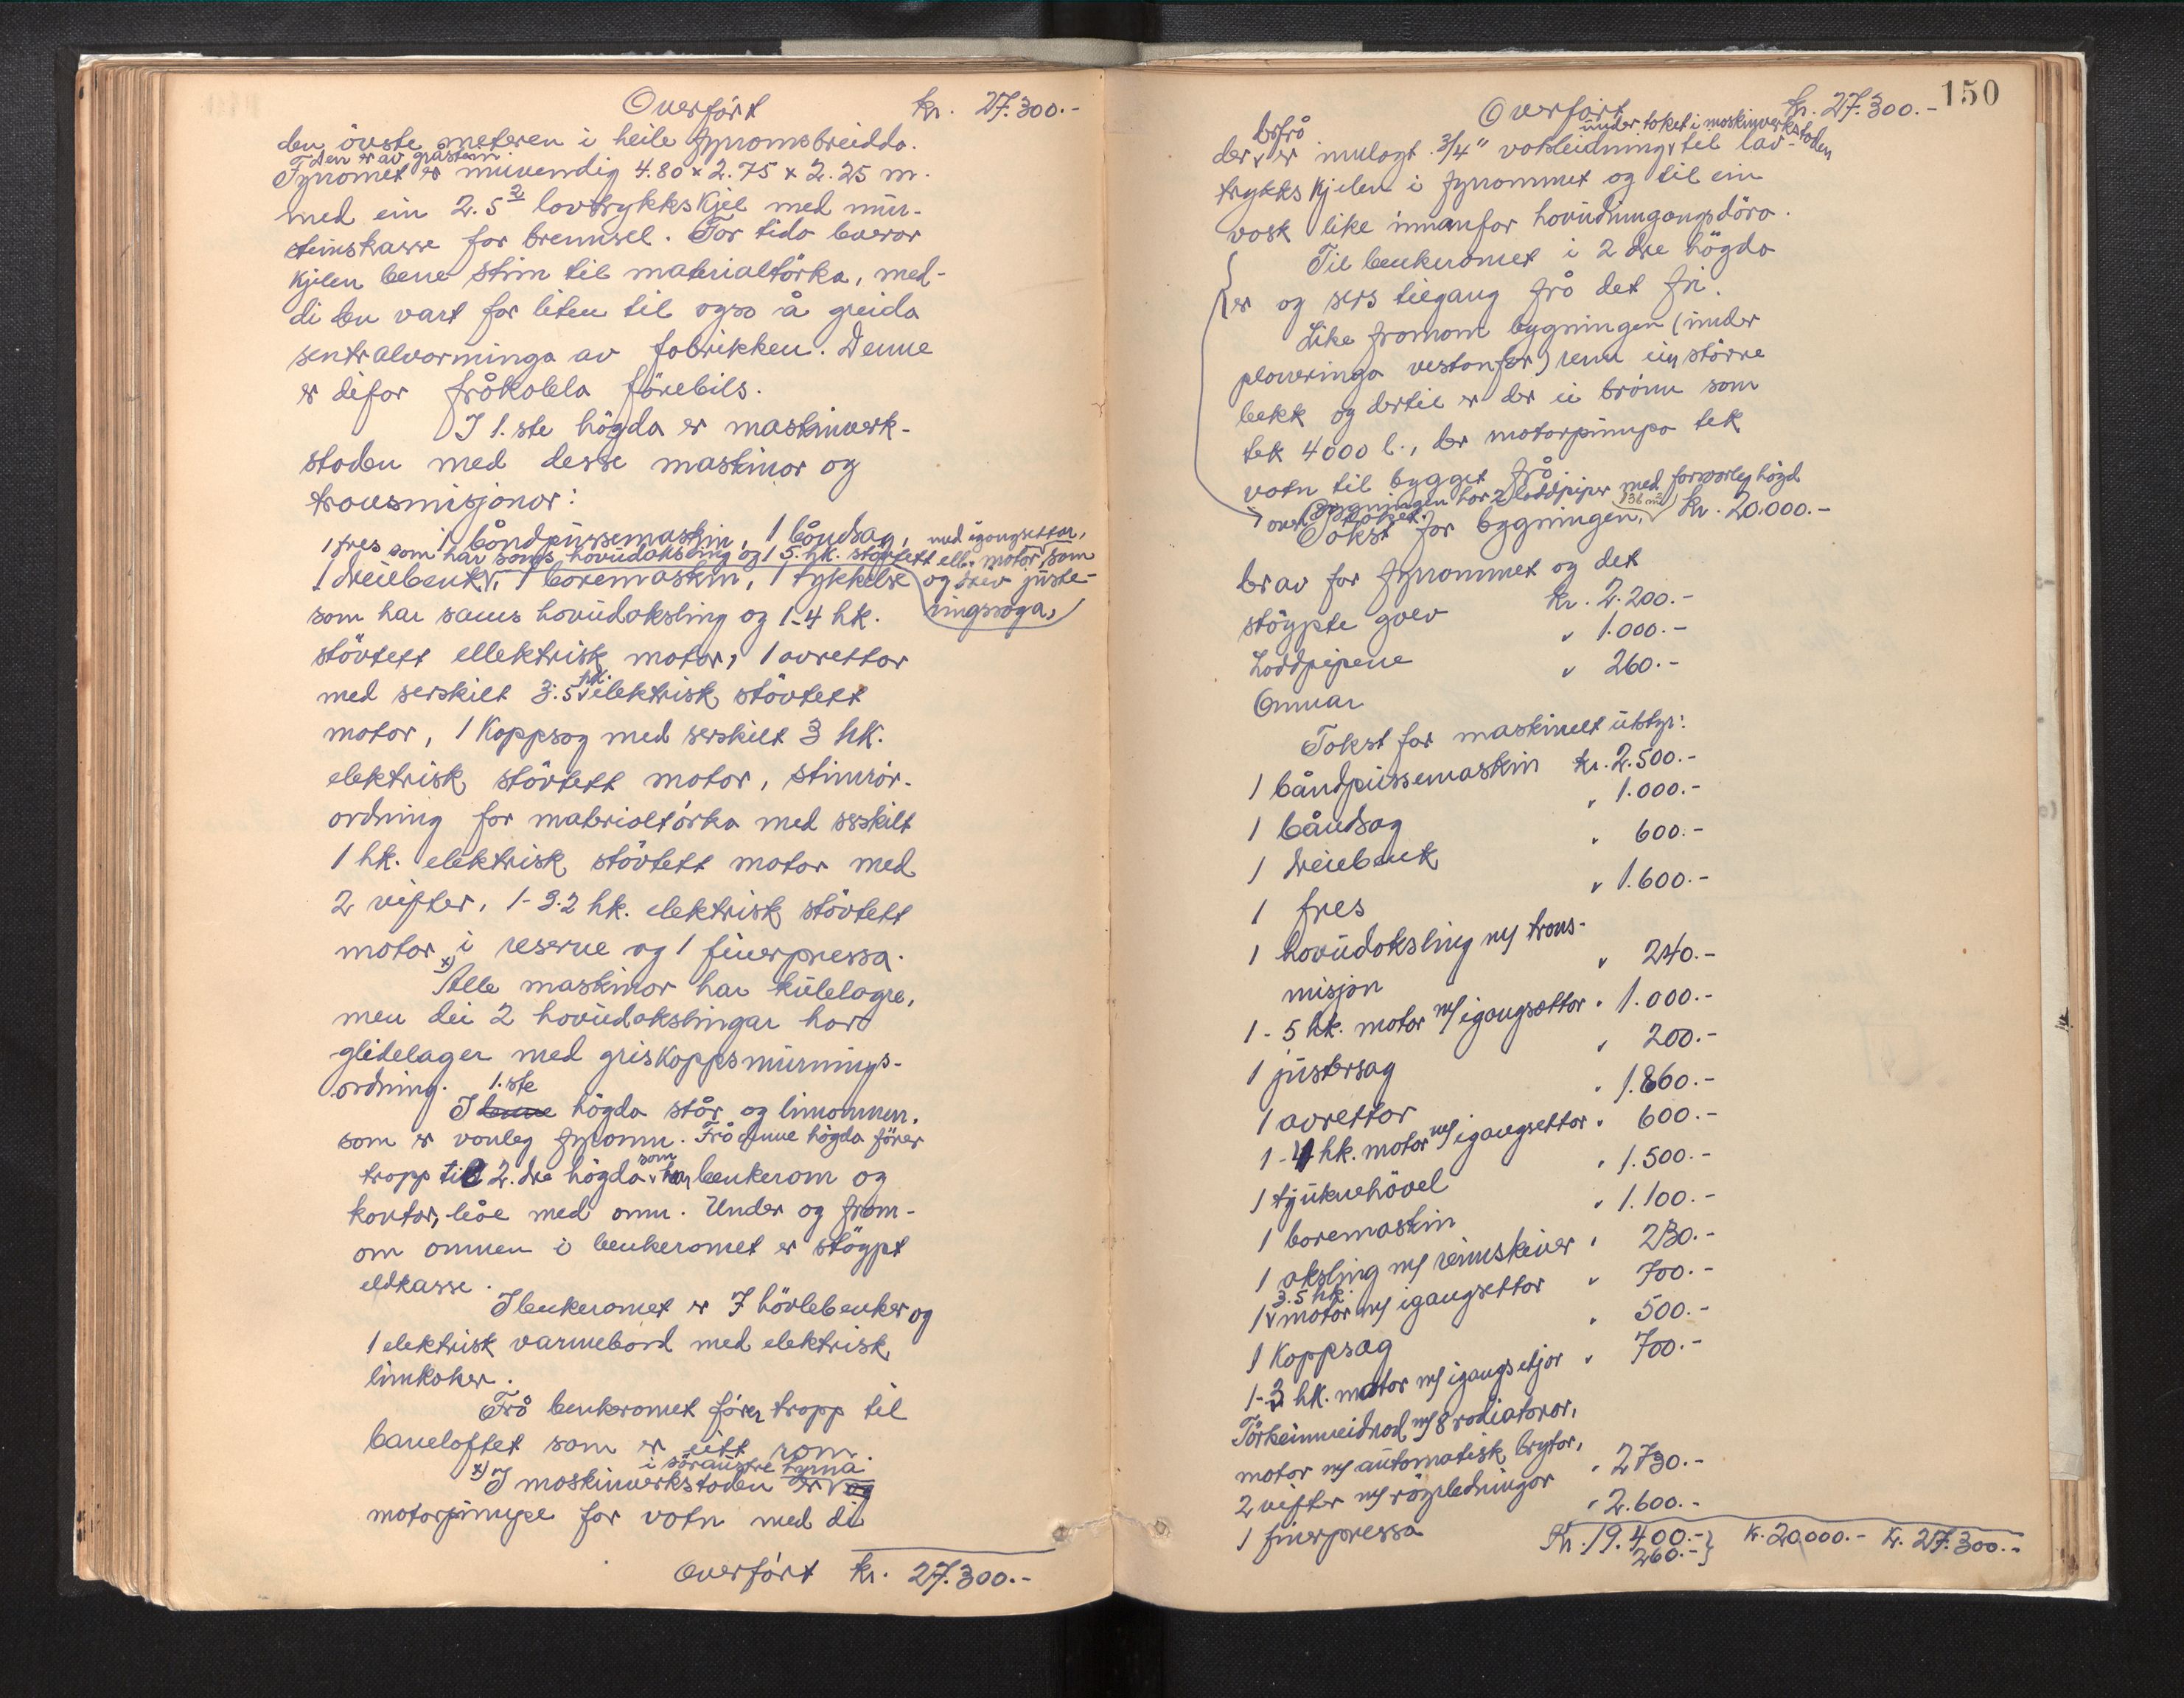 Overfört kr. 27.300.-
den övste meteren i heile fyromsbreidda.
Den er av gråstein
Fyromet er innvendig 4.80 x 2.75 x 2.25 m.
med ein 2.5 m² lavtrykkskjel med mur-
steinskasse for brennsel. For tida leverar
kjelen berre stim til materialtörka, med-
di den vart for liten til også å greida
sentralvarminga av fabrikken. Denne
er difor fråkobla förebils.
I 1.ste högda er maskinverk-
staden med desse maskinor og
transmisjonar:
1 båndpussemaskin, 1 båndsag, med igangsettar,
1 fres som har sams hovudaksling og 1 5. hk. stövtett ell. motor som
1 dreiebenk, 1 boremaskin, 1 tykkelse og drev juste-
som har sams hovudaksling og 1-4 hk. ringssaga,
stövtett ellektrisk motor, 1 avrettar
med serskilt 3.5 hk. elektrisk stövtett
motor, 1 Kappsag med serskilt 3 hk.
elektrisk stövtett motor, stimrör-
ordning for materialtörka med serskilt
1 hk. elektrisk stövtett motor med
2 vifter, 1-3.2 hk. elektrisk stövtett
motor i reserve og 1 finerpressa.
x)
Alle maskinor har kulelagre,
men dei 2 hovudakslingar har
glidelager med griskoppsmurnings-
ordning.
1.ste
I denne högda står og limomnen,
som er vanleg fyromn. Frå denne högda förer
tropp til 2.dre högda som har benkerom og
kontor, båe med omn. Under og fram-
om omnen i benkeromet er stöypt
eldkasse.
I benkeromet er 7 hövlebenker og
1 elektrisk varmebord med elektrisk
limkoker.
Frå benkeromet förer tropp til
baneloftet som er eitt rom.
i söraustre hyrna
x) I maskinverkstaden er og
motorpumpe for vatn med di
Overfört kr. 27.300.-
150
Overfört kr. 27.300.-
derfrå under taket i maskinverkstaden
der er innlagt 3/4" vatsleidning til lav-
trykkskjelen i fyrommet og til ein
vask like innanfor hovudinngangsdöra.
Til benkeromet i 2 dre högda
er og sers tilgang frå det fri.
Like framom bygningen (under
planeringa vestanfor) renn ein större
bekk og dertil er der ei brönn som
tek 4000 l., der motorpumpa tek
vatn til bygget frå
Bygningen har 2 loddpiper med forsvarleg högd
over taket.
136 m²
Takst for bygningen, kr. 20.000.-
derav for fyrommet og det
stöypte golv kr. 2.200.-
Loddpipene " 1.000.-
Omnar " 260.-
Takst for maskinelt utstyr:
1 båndpussemaskin kr. 2.500.-
1 båndsag " 1.000.-
1 dreiebenk " 600.-
1 fres " 1.600.-
1 hovudaksling m/ trans-
misjon " 240.-
1-5 hk. motor m/ igangsettar " 1.000.-
1 justersag " 200.-
1 avrettar " 1.860.-
1-4 hk. motor m/ igangsettar " 600.-
1 tjuknehövel " 1.500.-
1 boremaskin " 1.100.-
1 aksling m/ reimskiver " 230.-
3.5 hk.
1 motor m/ igangsettar " 700.-
1 Kappsag " 500.-
1-3 hk. motor m/ igangsetjar " 700.-
Törkeinnreidnad m/ 8 radiatorar,
motor m/ automatisk brytar,
2 vifter m/ röyrledningar " 2730.-
1 finerpressa " 2.600.-
Kr. 19.400.- } kr. 20.000.- kr. 27.300.-
260.-